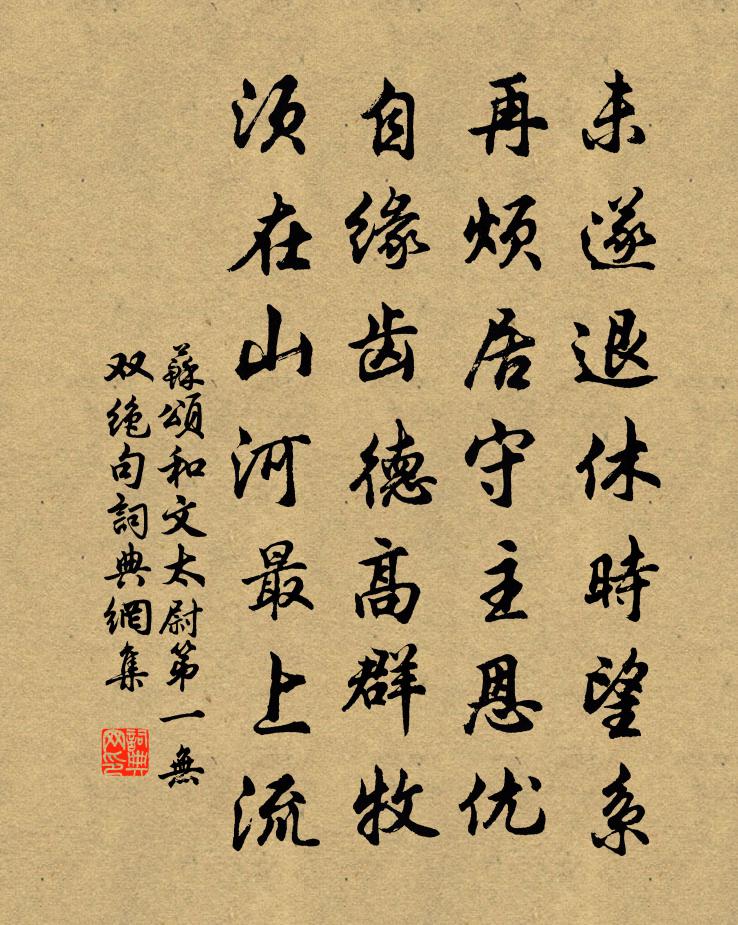 未遂退休時望系
再烦居守主恩优
自缘齿德高群牧
须在山河最上流
蘇頌和文太尉第一無
双绝句詞典網集
詞典
网